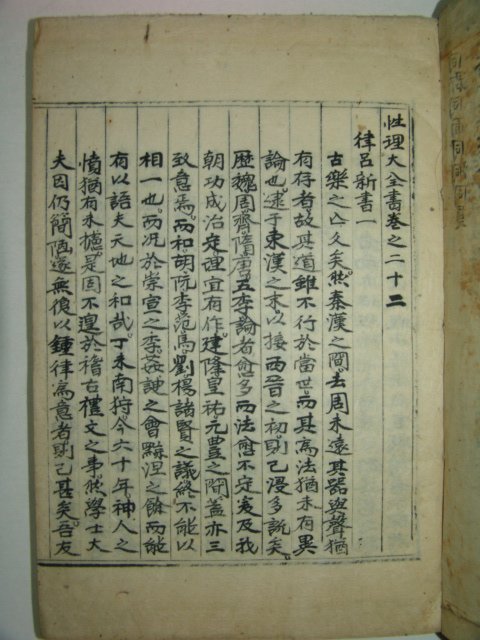 性理大全書巻之二十二
律呂新書一
古樂之亡久矣然秦漢之間去周未遠其器與聲猶
有存者故其道雖不行於當世而其爲法猶未有異
論也逮于東漢之末以接西晋之初則已浸多說矣
歴魏周齊隋唐五季論者愈多而法愈不定爰及我
朝功成治定理宜有作建隆皇祐元豊之間盖亦三
致意焉而和胡阮李范馬劉楊諸賢之議終不能以
相一也而况於崇宣之季姦諛之會黥涅之餘而能
有以語夫天地之和哉丁未南狩今六十年神人之
憤猶有未攄是固不遑於稽古禮文之事然學士大
夫因仍簡陋遂無復以鍾律爲意者則已甚矣吾友